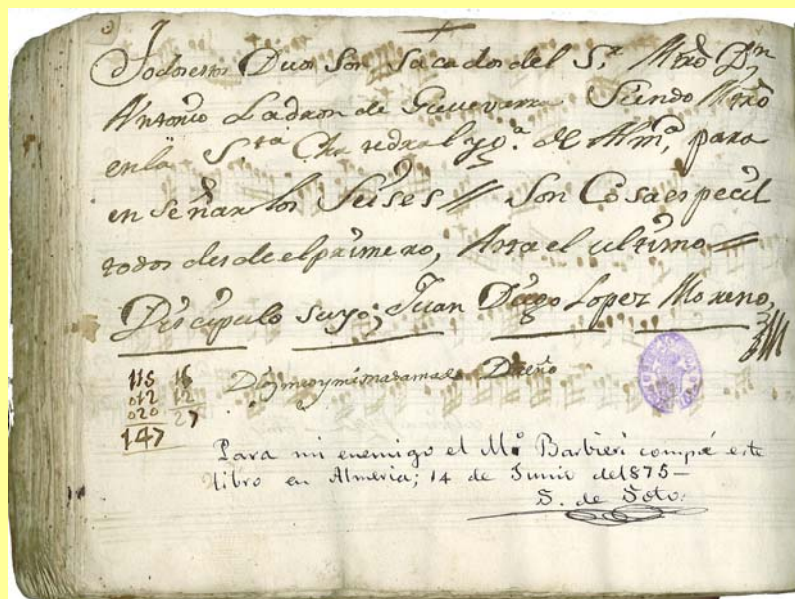 Todos estos Duos Son Sacados del S.r Mtro Dn
Antonio Ladron de Guevarra Siendo Mtro
en la Sta Cathedral ygª. de Almª, para
en señar los Seises // Son Cosa espeçil
todos desde el primero, Asta el ultimo //
Discipulo suyo; Juan Diego Lopez Moreno,
115 15
012 12
020 27
147
Dueño
Para mi enemigo el Mº Barbieri compré este
libro en Almeria; 14 de Junio del 1875—
S. de Soto.